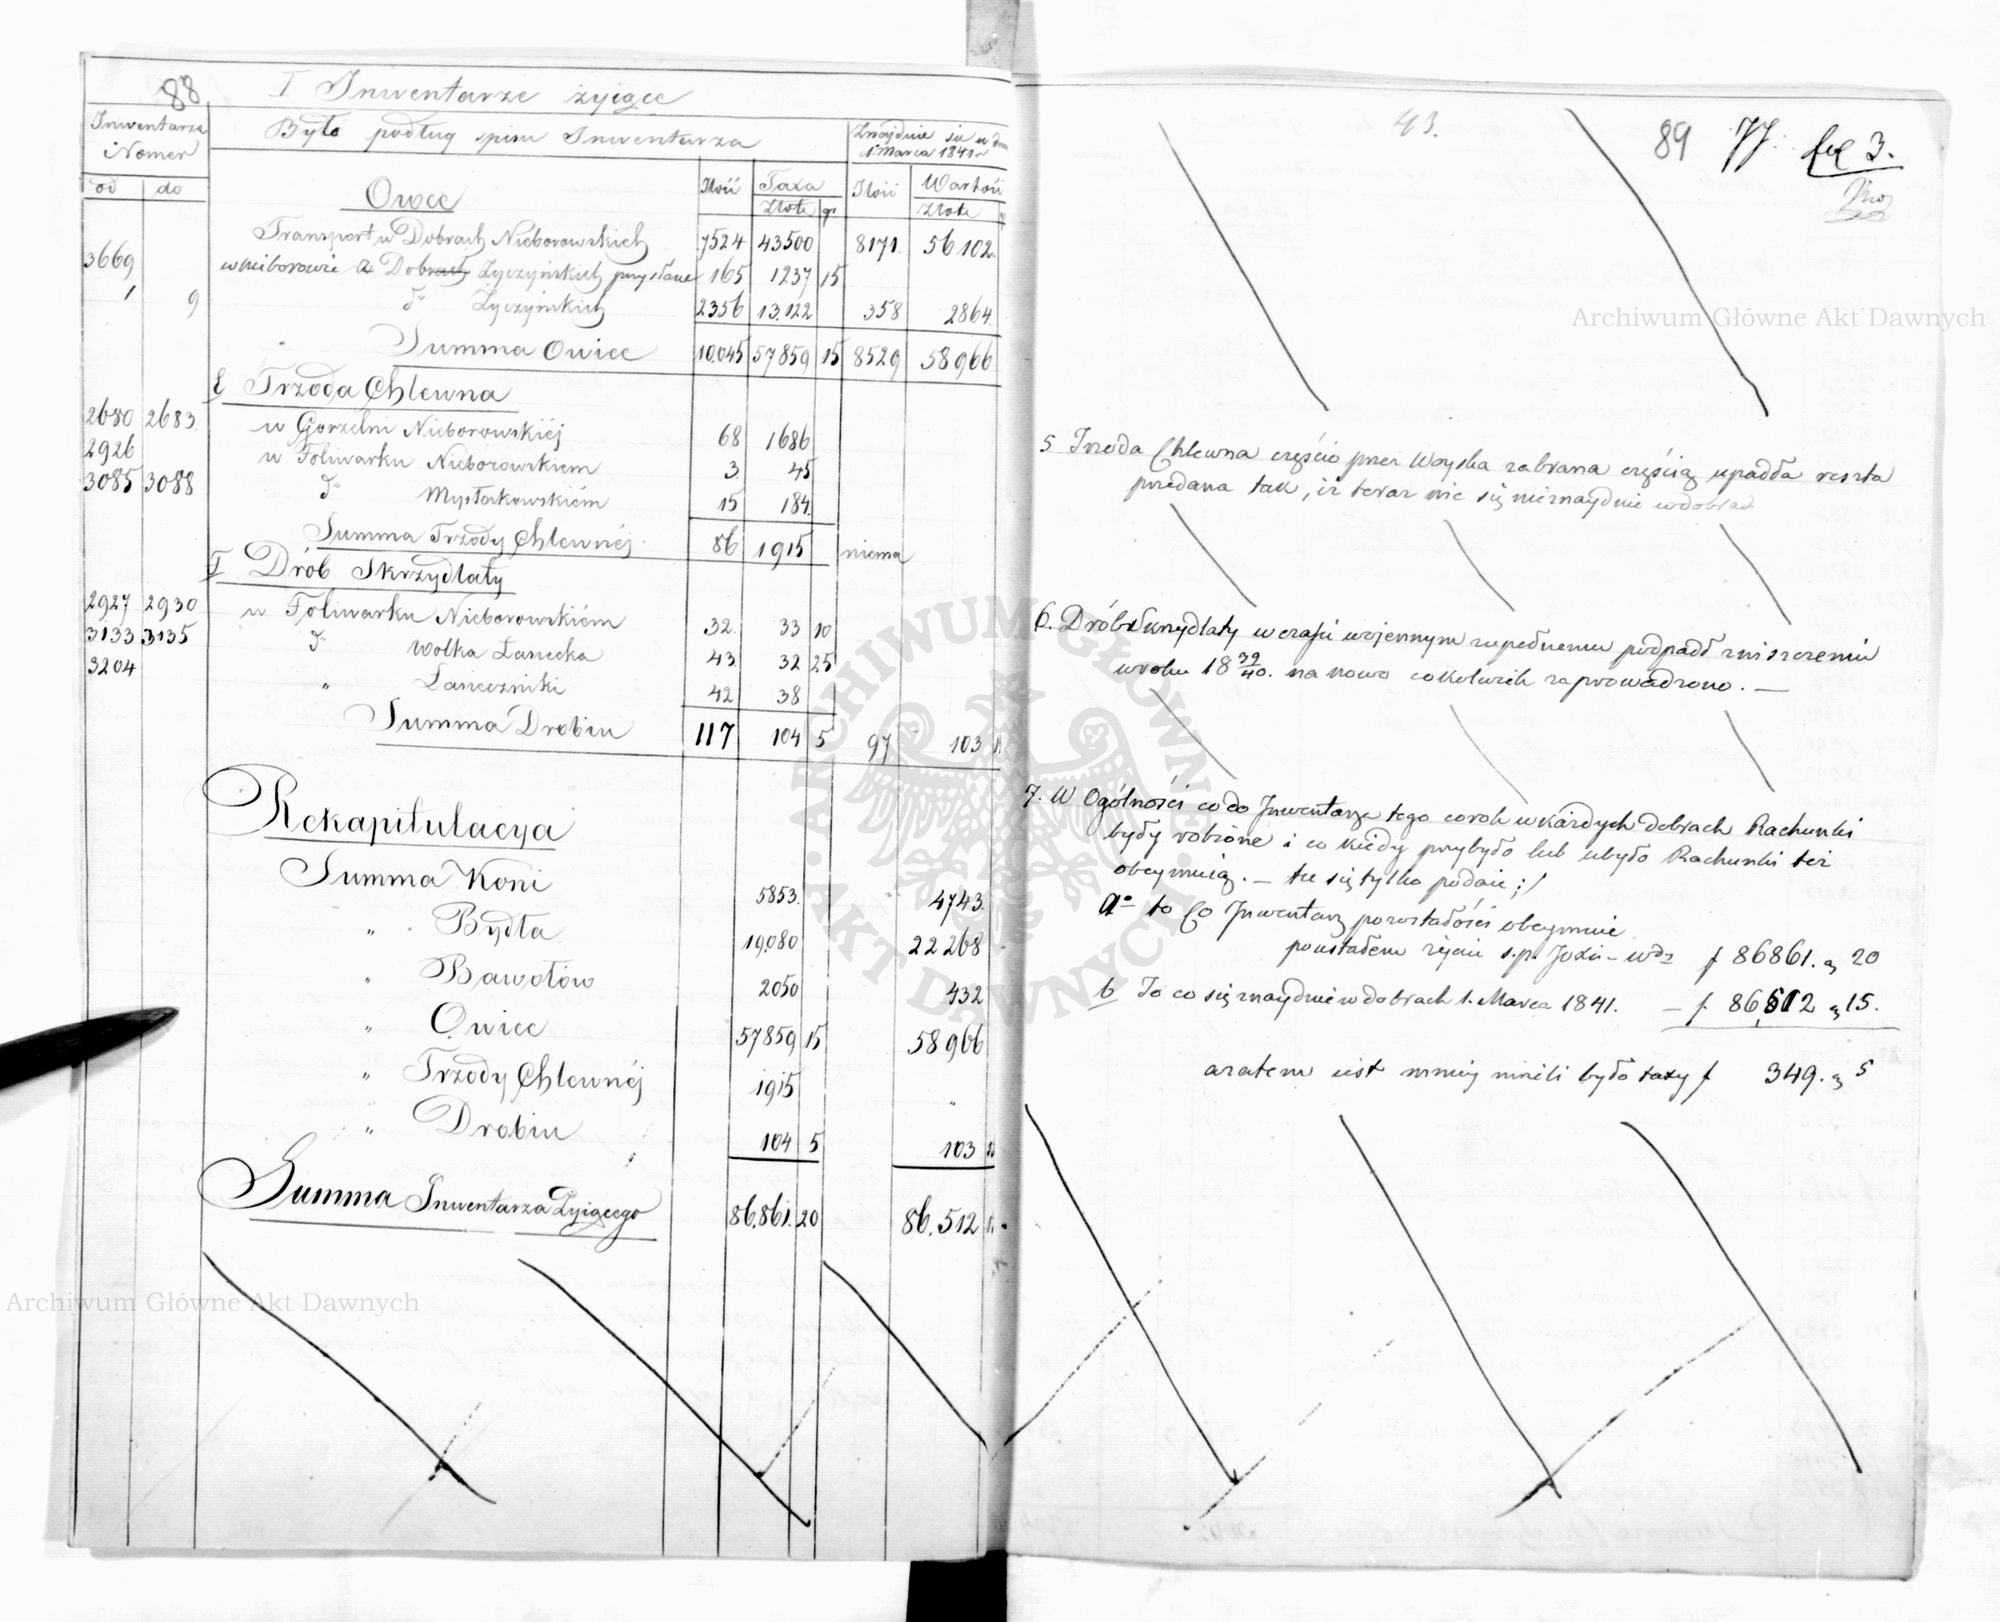 88
I Inwentarze żyiące
Inwentarza Nomer
od do
Było podług spisu Inwentarza
Znajduie się w dniu 1 Marca 1841 r
Ilość Taxa Złote gr Ilość Wartość Złote
Owce
Transport w Dobrach Nieborowskich 7524 43500 8171. 56102.
3669 w Nieborowie z Dobrach Zyczyńskich przysłane 165 1237 15
1 9 do Zyczyńskich 2356 13.122 358 2864.
Summa Owiec 10.045 57859 15 8529 58966
E Trzoda Chlewna
2680 2683. w Gorzelni Nieborowskiéj 68 1686
2926 w Folwarku Nieborowskiem 3. 45
3085 3088 do Mysłakowskiém 15 184.
Summa Trzody Chlewnéj 86 1915 niema
F Drób Skrzydlaty
2927 2930 w Folwarku Nieborowskiém 32. 33 10
3133 3135 do Wolka Łasiecka 43 32 25
3204 " Łasieczniki 42 38
Summa Drobiu 117 104 5 97 103
Rekapitulacya
Summa Koni 5853. 4743.
" Bydła 19,080 22268
" Bawołów 2050 432
" Owiec 57859 15 58966
" Trzody Chlewnéj 1915 "
" Drobiu 104 5 103
Summa Inwentarza Żyiącego 86,861. 20 86.512
43.
89 JJ. fol 3.
5 Trzoda Chlewna częścio przez Woyska zabrana częścią upadła reszta
przedana tak, iż teraz nic się nieznayduie w dobrach
6. Drób Skrzydlaty w czasie wojennym zupełnemu podpadł zniszczeniu
w roku 18 39/40. na nowo cokolwiek zaprowadzono. —
7. W Ogólności co do Inwentarza tego corok w każdych dobrach Rachunki
były robione i co kiedy przybyło lub ubyło Rachunki też
obeymuią. — tu się tylko podaie ;/
a° to Co Inwentarz pozostałości obeymuie
pozostałem życiu s.p. f 86861. g 20
b To co się znayduie w dobrach 1. Marca 1841. — f. 86,512 g 15.
a zatem iest mniey niżeli było taxy f 349. g 5
Archiwum Główne Akt Dawnych
Archiwum Główne Akt Dawnych
ARCHIWUM GŁÓWNE • AKT DAWNYCH •